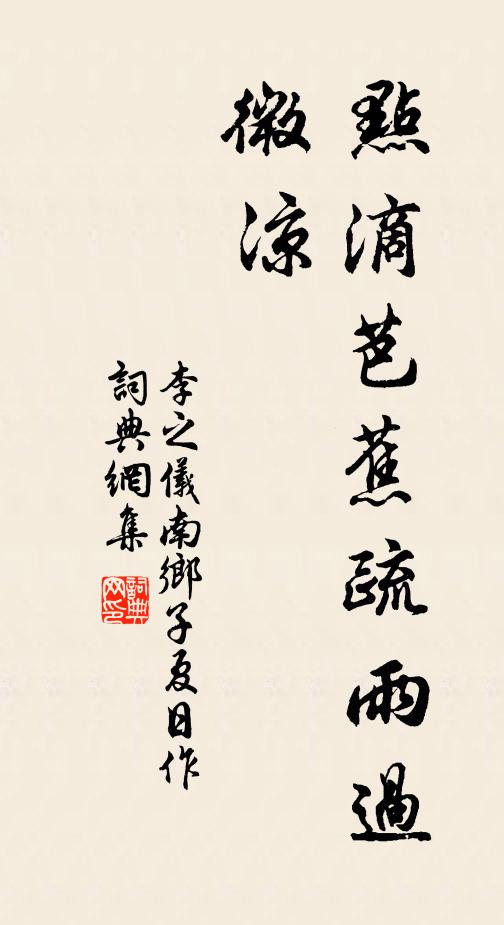 點滴芭蕉疏雨過
微涼
李之儀南鄉子夏日作
詞典網集
詞典
網印